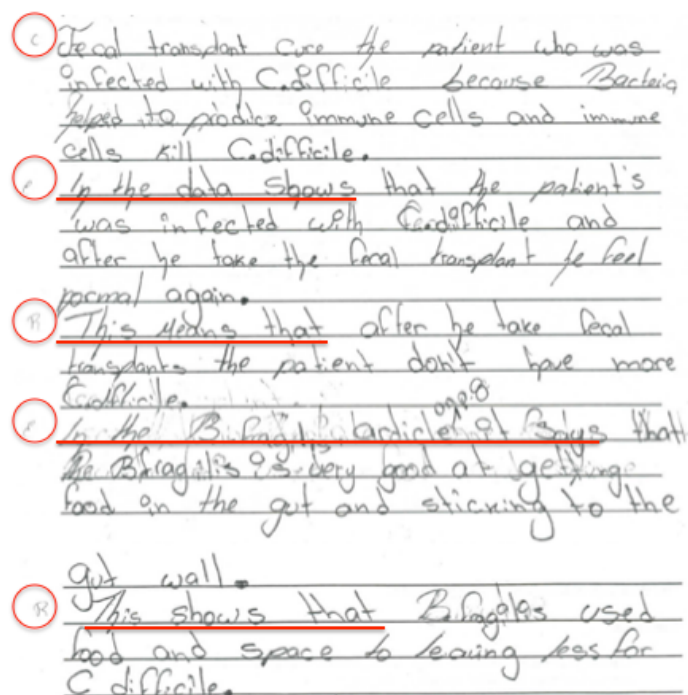 C Fecal transplant cure the patient who was
infected with C.difficile because Bacteria
helped to produce immune cells and immune
cells kill C.difficile.
E In the data shows that the patient's
was infected with C.difficile and
after he take the fecal transplant he feel
normal again.
R This means that after he take fecal
transplants the patient don't have more
C.difficile.
E In the B.fragilis article it says that
the B.fragilis is very good at getting
food in the gut and sticking to the
gut wall.
R This shows that B.fragilis used
food and space to leaving less for
C difficile.